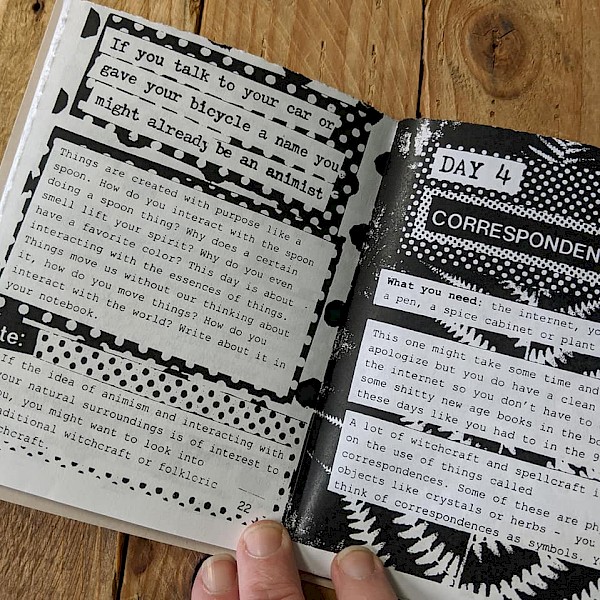 If you talk to your car or
gave your bicycle a name you
might already be an animist
Things are created with purpose like a
spoon. How do you interact with the spoon
doing a spoon thing? Why does a certain
smell lift your spirit? Why do you even
have a favorite color? This day is about
interacting with the essences of things.
Things move us without our thinking about
it, how do you move things? How do you
interact with the world? Write about it in
your notebook.
te:
If the idea of animism and interacting with
your natural surroundings is of interest to
you, you might want to look into
traditional witchcraft or folkloric
witchcraft
22
DAY 4
CORRESPONDEN
What you need: the internet,
a pen, a spice cabinet or plant
This one might take some time and
apologize but you do have a clean
the internet so you don't have to
some shitty new age books in the
these days like you had to in the
A lot of witchcraft and spellcraft
on the use of things called
correspondences. Some of these are
objects like crystals or herbs - you
think of correspondences as symbols.